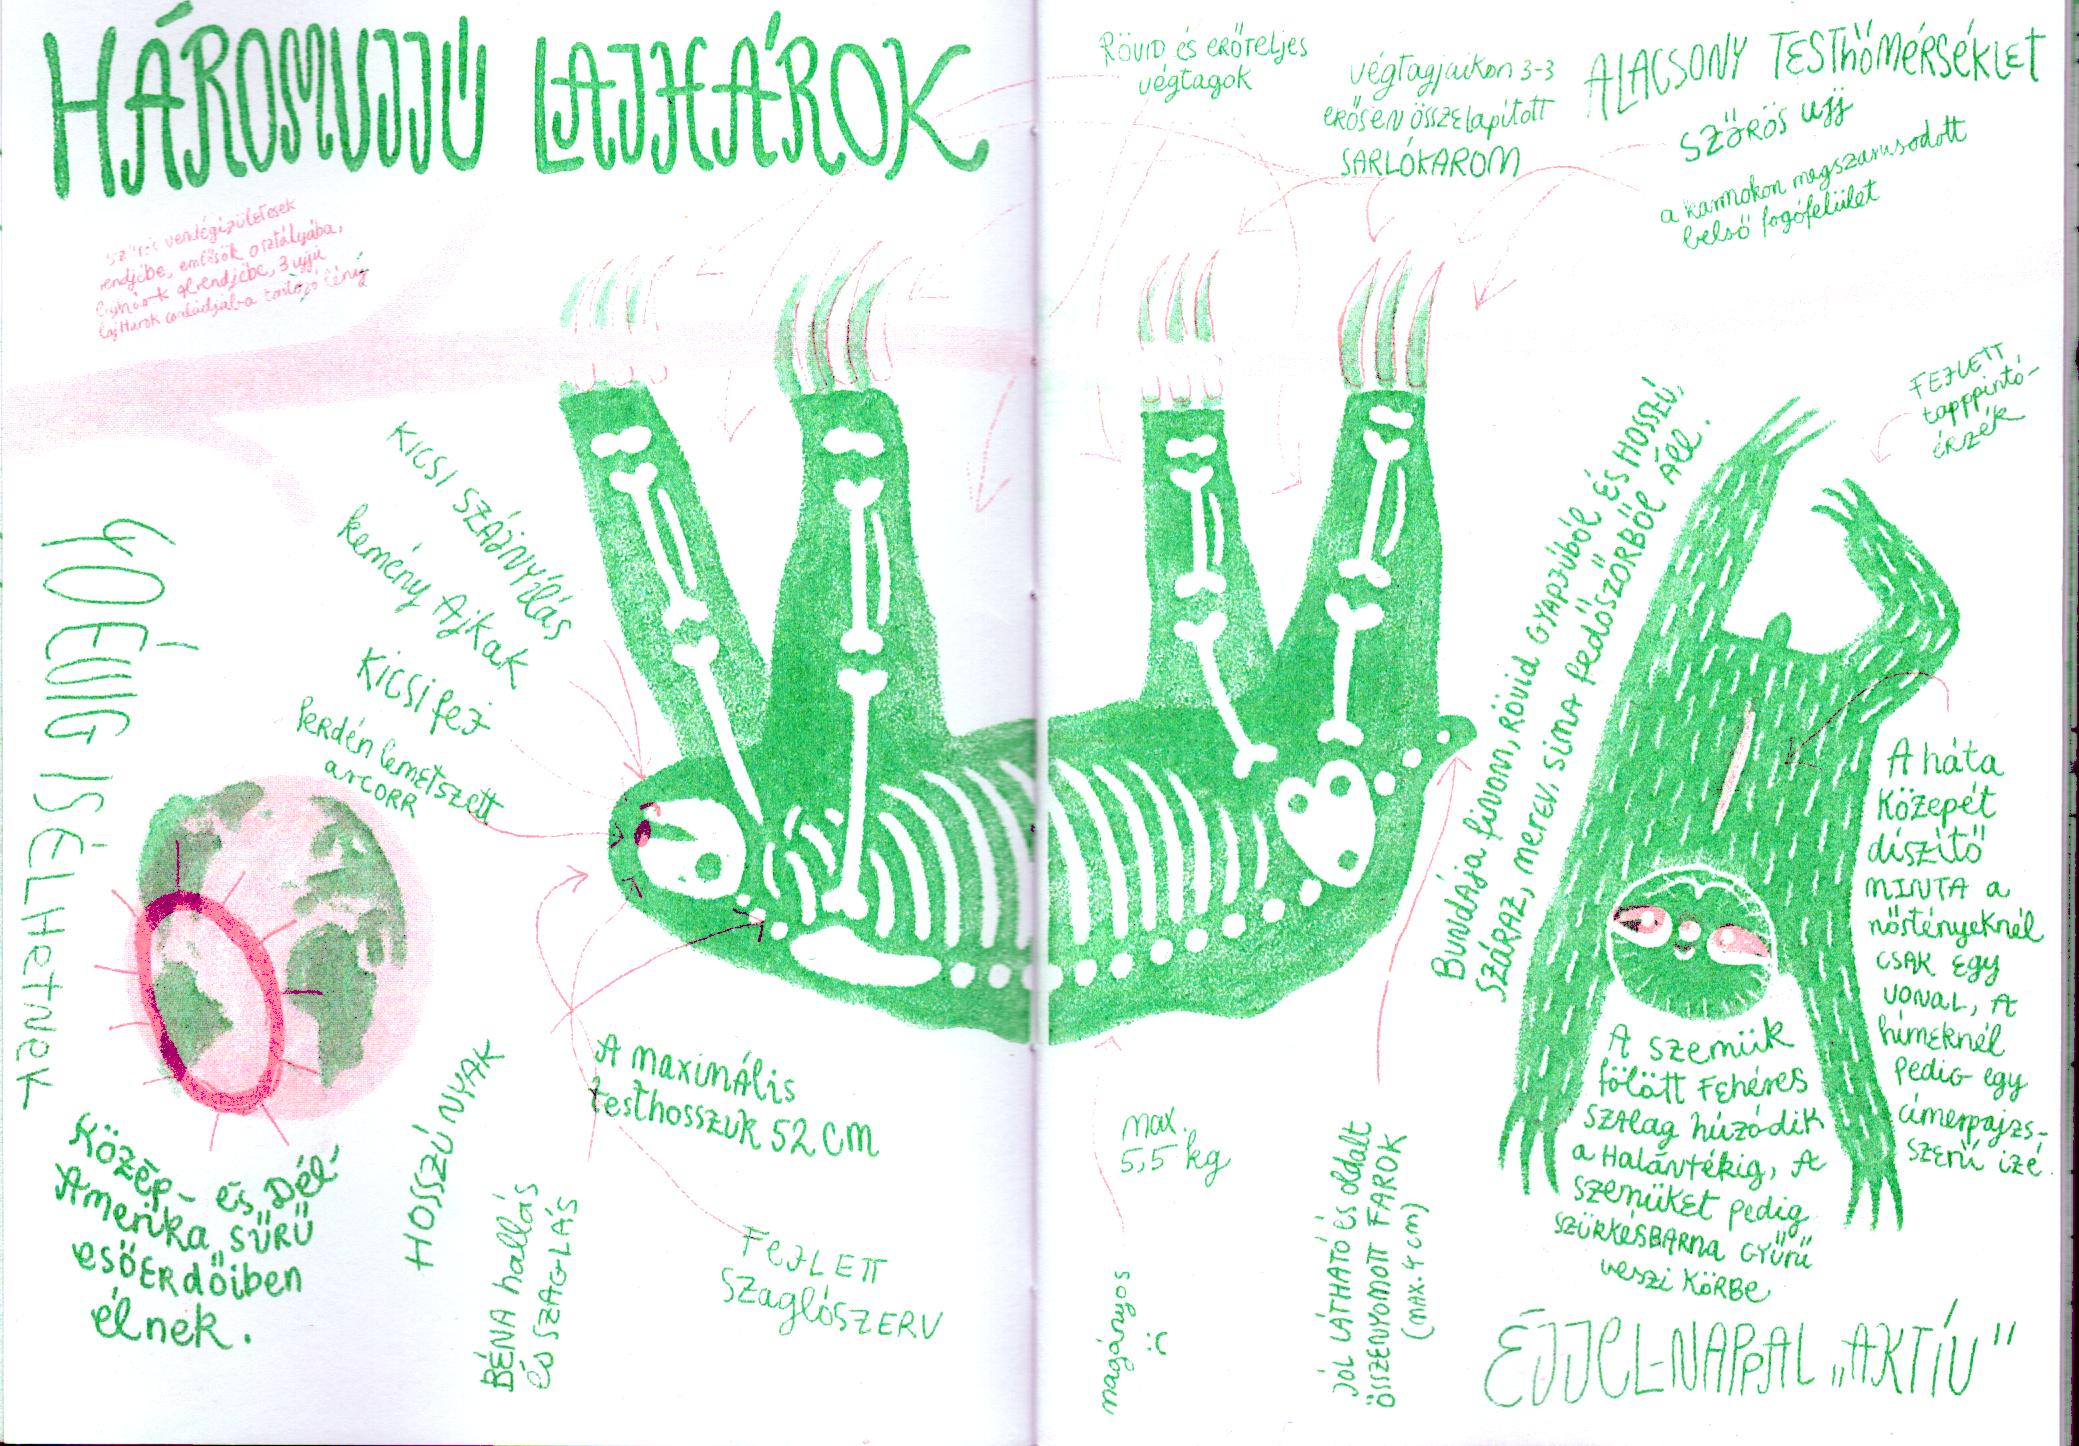 HÁROMUJJÚ LAJHÁROK
szőrös vendégízületesek
rendjébe, emlősök osztályába,
lajhárok alrendjébe, 3 ujjú
lajhárok családjába tartozó lény
RÖVID és ERŐTELJES
végtagok
végtagjaikon 3-3
ERŐSEN összelapított
SARLÓKAROM
ALACSONY TESTHŐMÉRSÉKLET
SZŐRÖS ujj
a karmokon megszarusodott
belső fogófelület
FEJLETT
tapppintó-
érzék
KICSI SZÁJNYÍLÁS
kemény AJkak
KICSI fEJ
ferdén lemetszett
arcORR
40 ÉVIG IS ÉLHETNEK
KÖZÉP- és Dél-
AmeRika SŰRŰ
esőERdőiben
élnek.
HOSSZÚ NYAK
BÉNA hallás
és SZAGLÁS
A maximális
testhosszuk 52 cm
FEJLETT
SZaglóSZERV
max.
5,5 kg
magányos
:(
JÓL LÁTHATÓ és oldalt
ÖSSZENYOMOTT FAROK
(max. 4 cm)
BUNDÁja finom, RÖVID GYAPJÚBÓL ÉS HOSSZÚ,
SZÁRAZ, meREV, sima fedőSZŐRBŐL ÁLL.
A háta
KÖZepét
díszítő
MINTA a
nőstényeknél
CSAK EGY
VONAL, A
hímEKnél
pedig egy
címerpajzs-
szerű izé.
A szemük
fölött FEHéRes
SZALag húzódik
a Halántékig, A
szemüket pedig
SZÜRKÉSBARNA GYŰRŰ
veszi KÖRBe
ÉJJEL-NAPPAL „AKTÍV"